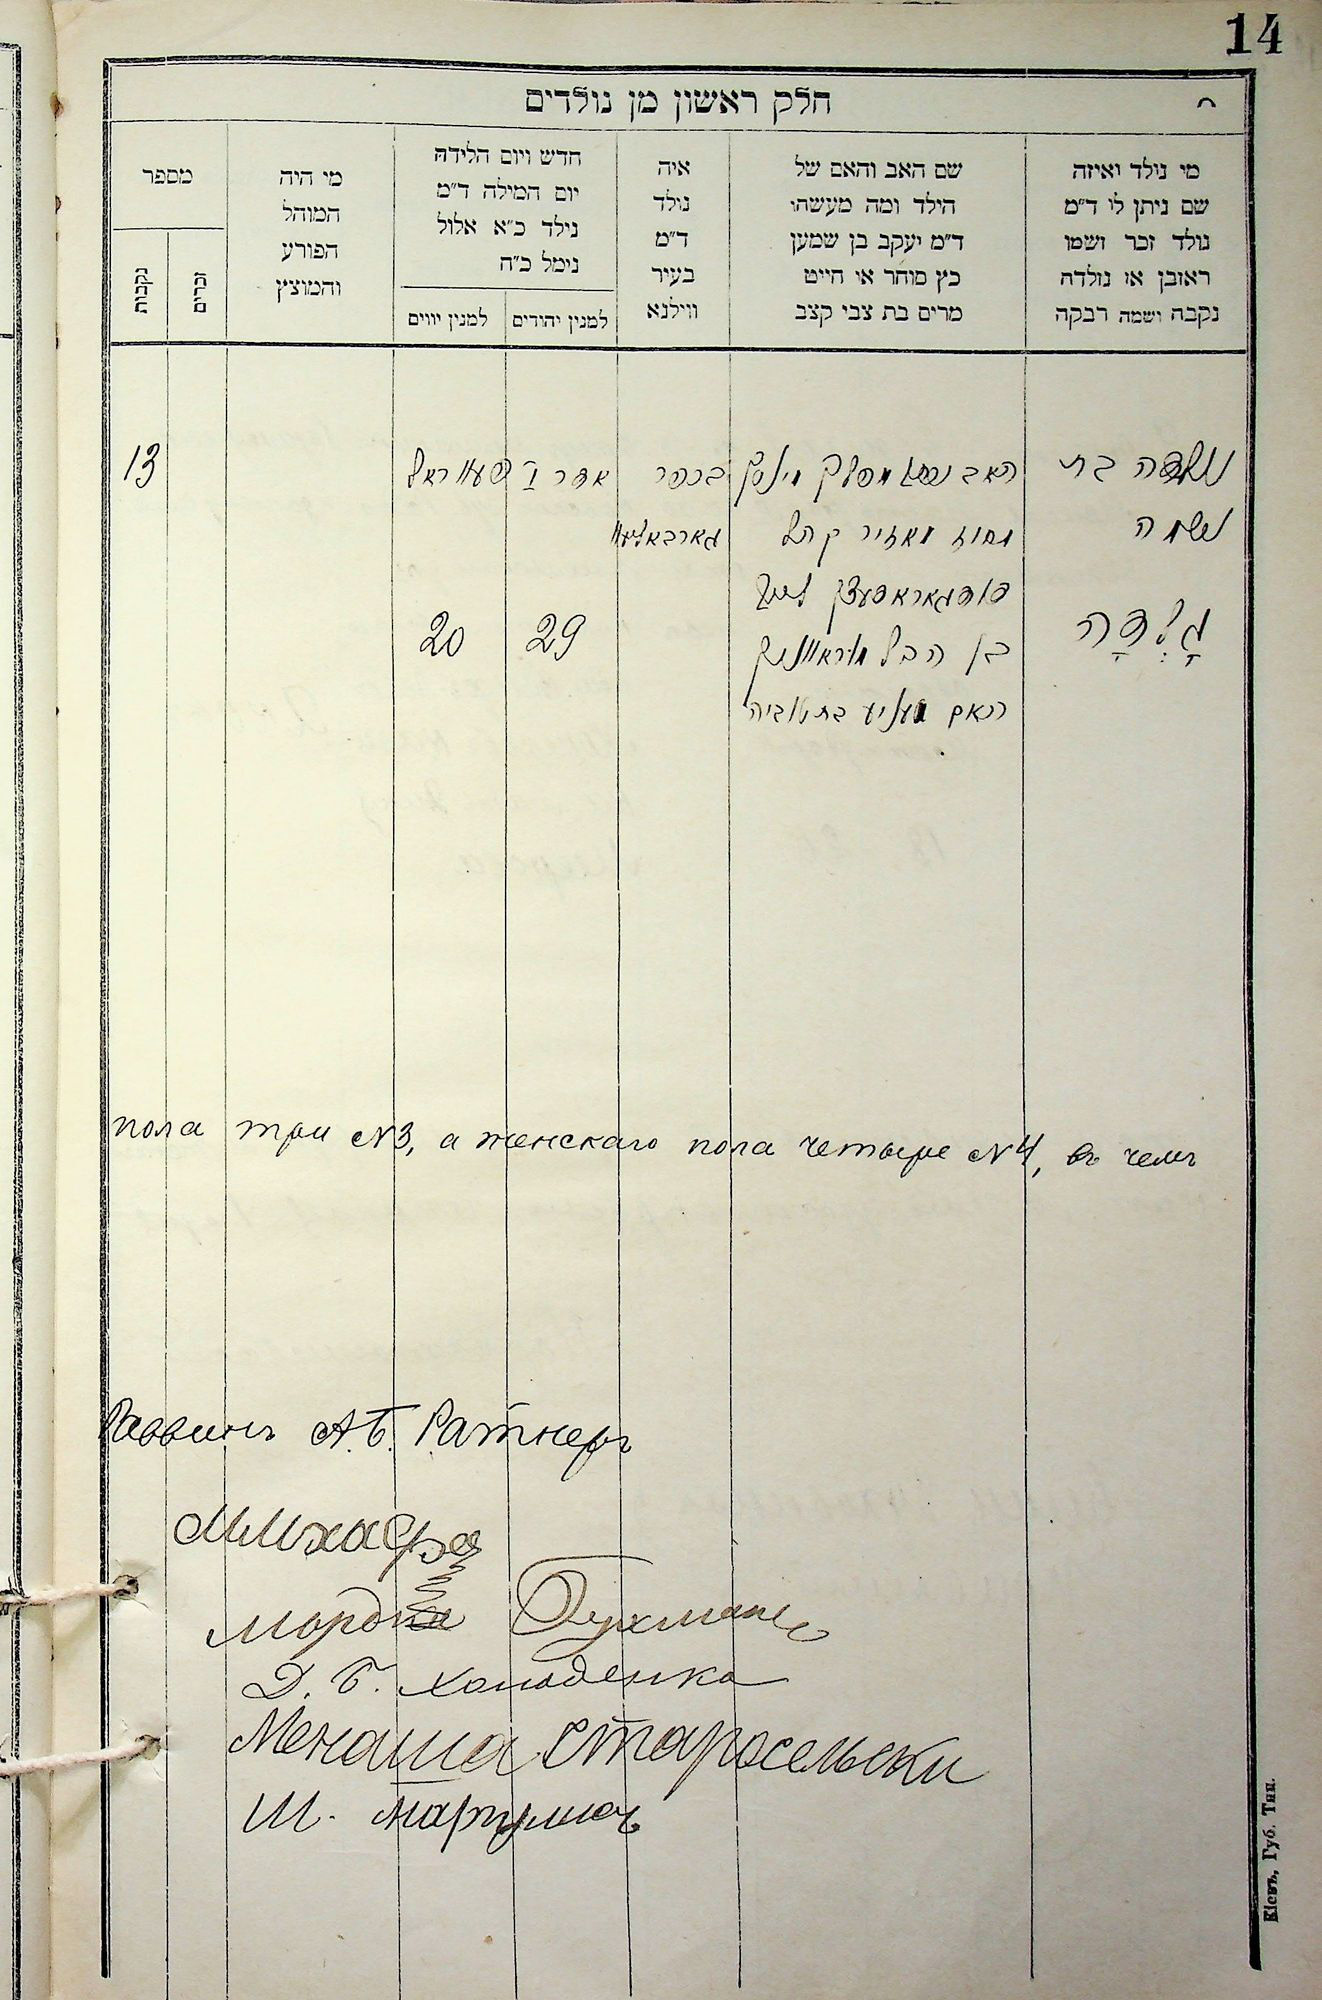 14
חלק ראשון מן נולדים
מי נולד ואיזה
שם ניתן לו ד"מ
נולד זכר ושמו
ראובן או נולדה
נקבה ושמה רבקה
שם האב והאם של
הילד ומה מעשהו
ד"מ יעקב בן שמען
כץ סוחר או חייט
מרים בת צבי קצב
איה
נולד
ד"מ
בעיר
ווילנא
חדש ויום הלידה
יום המילה ד"מ
נילד כ"א אלול
נימל כ"ח
למנין יהודים
למנין יווים
מי היה
המוהל
הפורע
והמוצץ
מספר
זכרים
נקבות
נולדה בת
ושמה
גָלְדָה
האב
מחוז מאזיר קהל
בן הבל
האם בת טוביה
בכפר
אדר I
29
פעווראל
20
13
пола три №3, а женскаго пола четыре №4, въ чемъ
Раввинъ А.Б. Ратнеръ
Мордко
Д. Б. Холоденко
Менаша Старосельски
Ш. Маргулисъ
Кіевъ, Губ. Тип.